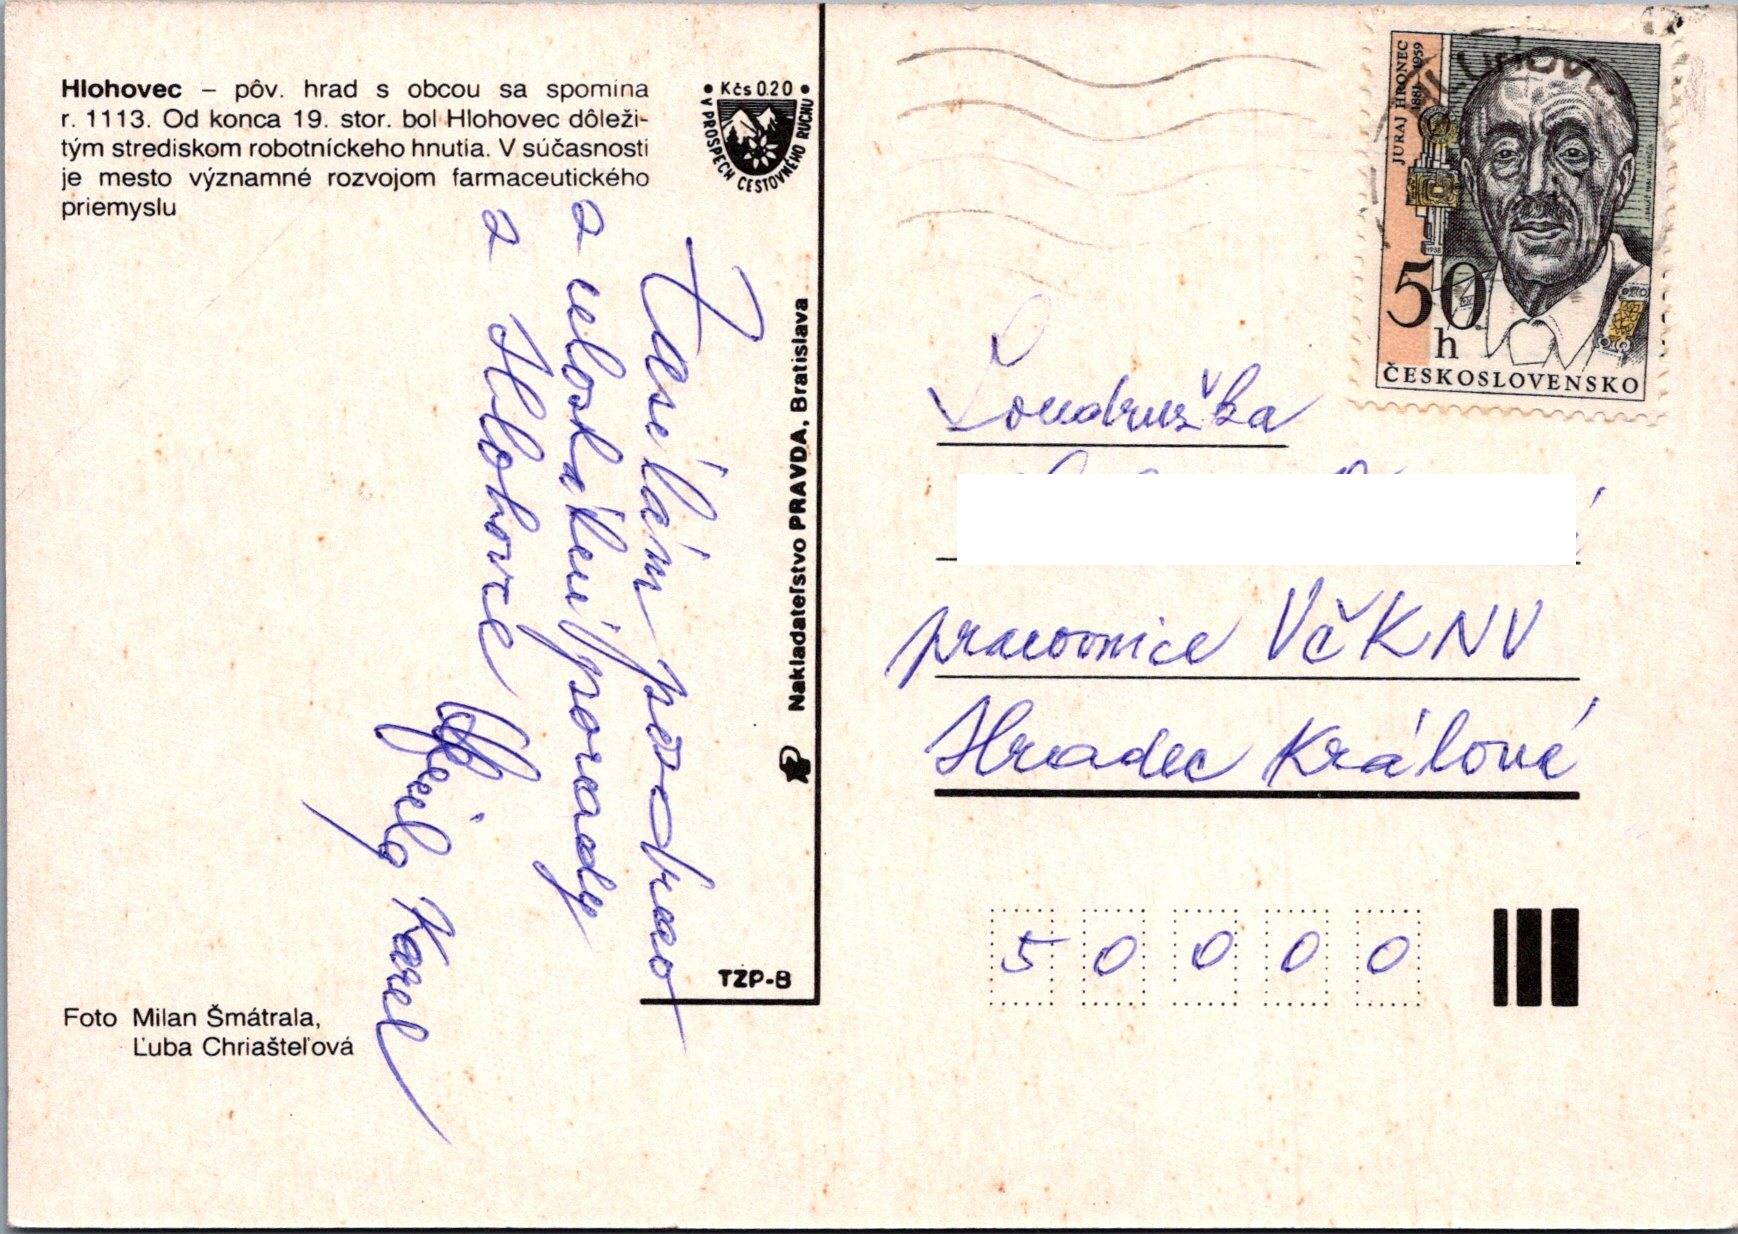 Hlohovec – pôv. hrad s obcou sa spomína
r. 1113. Od konca 19. stor. bol Hlohovec dôleži-
tým strediskom robotníckeho hnutia. V súčasnosti
je mesto významné rozvojom farmaceutického
priemyslu
• Kčs 0.20 •
V PROSPECH CESTOVNÉHO RUCHU
Zasílám pozdrav
z celostátní porady
z Hlohovce
Karel
Nakladateľstvo PRAVDA, Bratislava
TZP-B
Foto Milan Šmátrala,
Ľuba Chriašteľová
JURAJ HRONEC
1881-1959
50
h
ČESKOSLOVENSKO
Soudružka
pracovnice VčKNV
Hradec Králové
5 0 0 0 0